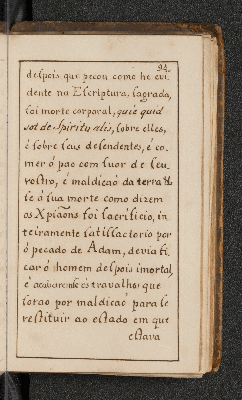 94.
despois que pecou como he evi-
dente na Escriptura, sagrada,
foi morte corporal, quie quid
sot de Spiritu alis, sobre elles,
é sobre seus desendentes, é co-
mer ó pao com suor de seu
rostro, é maldicaõ da terra
se á sua morte como dizem
os Xpiaons foi sacrificio, in-
teiramente satisfactorio por
ó pecado de Adam, devia fi-
car ó homem despois imortal,
é acabarem se ós travalhos que
foraõ por maldicaõ para se
restituir ao estado em que
estava